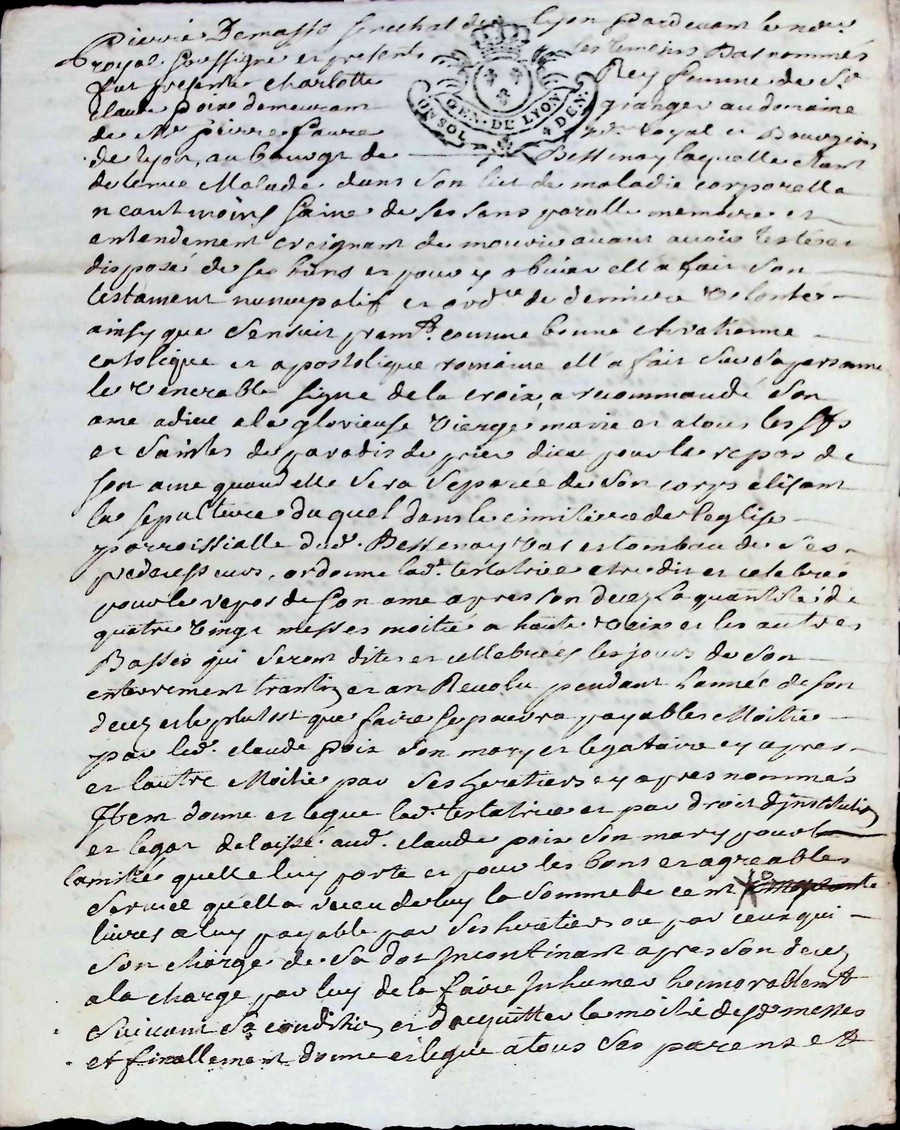 Pierre Demasso Greshat de lyon Pardevant le nore
royal soussigne et presents les temoins Bas nommés
GEN. DE LYON
UN SOL 4 DEN.
fut presente charlotte Rey femme de Sr
claude poix demeurant granger au domaine
de Mr pierre faure nre Royal et Bourgeois
de lyon, au bourg de Bessenay laquelle etant
detenue Malade dans son lit de maladie corporelle
neantmoins saine de ses sens parolle memoire et
entendement creignant de mourir avant avoir testé et
disposé de ses biens et pour y obvier ell a fait son
testament nuncupatif et ordce de derniere volonté
ainsy que sensuit premt. comme bonne chratienne
catolique et apostolique romaine ell a fait sur sa personne
le venerable signe de la croix, a recommandé son
ame a dieu a la glorieuse vierge marie et a tous les sts
et saintes de paradis de prier dieu pour le repos de
son ame quand elle sera separée de son corps elisant
la sepulture duquel dans le cimitiere de leglise
parroissialle dud. Bessenay vas et tombau de ses
predecesseurs, ordonne lad. testatrice etre dit et celebré
pour le repos de son ame apres son decez la quantité de
quatre vingt messes moitié a haute voix et les autres
Basses qui seront dites et cellebrées les jours de son
enterrement trantin et an Revolu pendant lannée de son
decez et le plutost que faire se pourra payables Moitié
par led. claude poix son mary et legataire cy apres
et lautre Moitié par ses heretiers cy apres nommés
Item donne et legue lad. testatrice et par droit dinstitution
et legat delaisse aud. claude poix son mary pour
lamitié quelle luy porte et pour les bons et agreables
service quell a receu de luy la somme de cent
livres a luy payable par ses heretiers ou par ceux qui
son chargé de sa dot incontinant apres son decez
a la charge par luy de la faire inhumer honnorablemt
suivant sa condition et dacquitter la moitié desd. messes
et finallement donne et legue a tous ses parens et